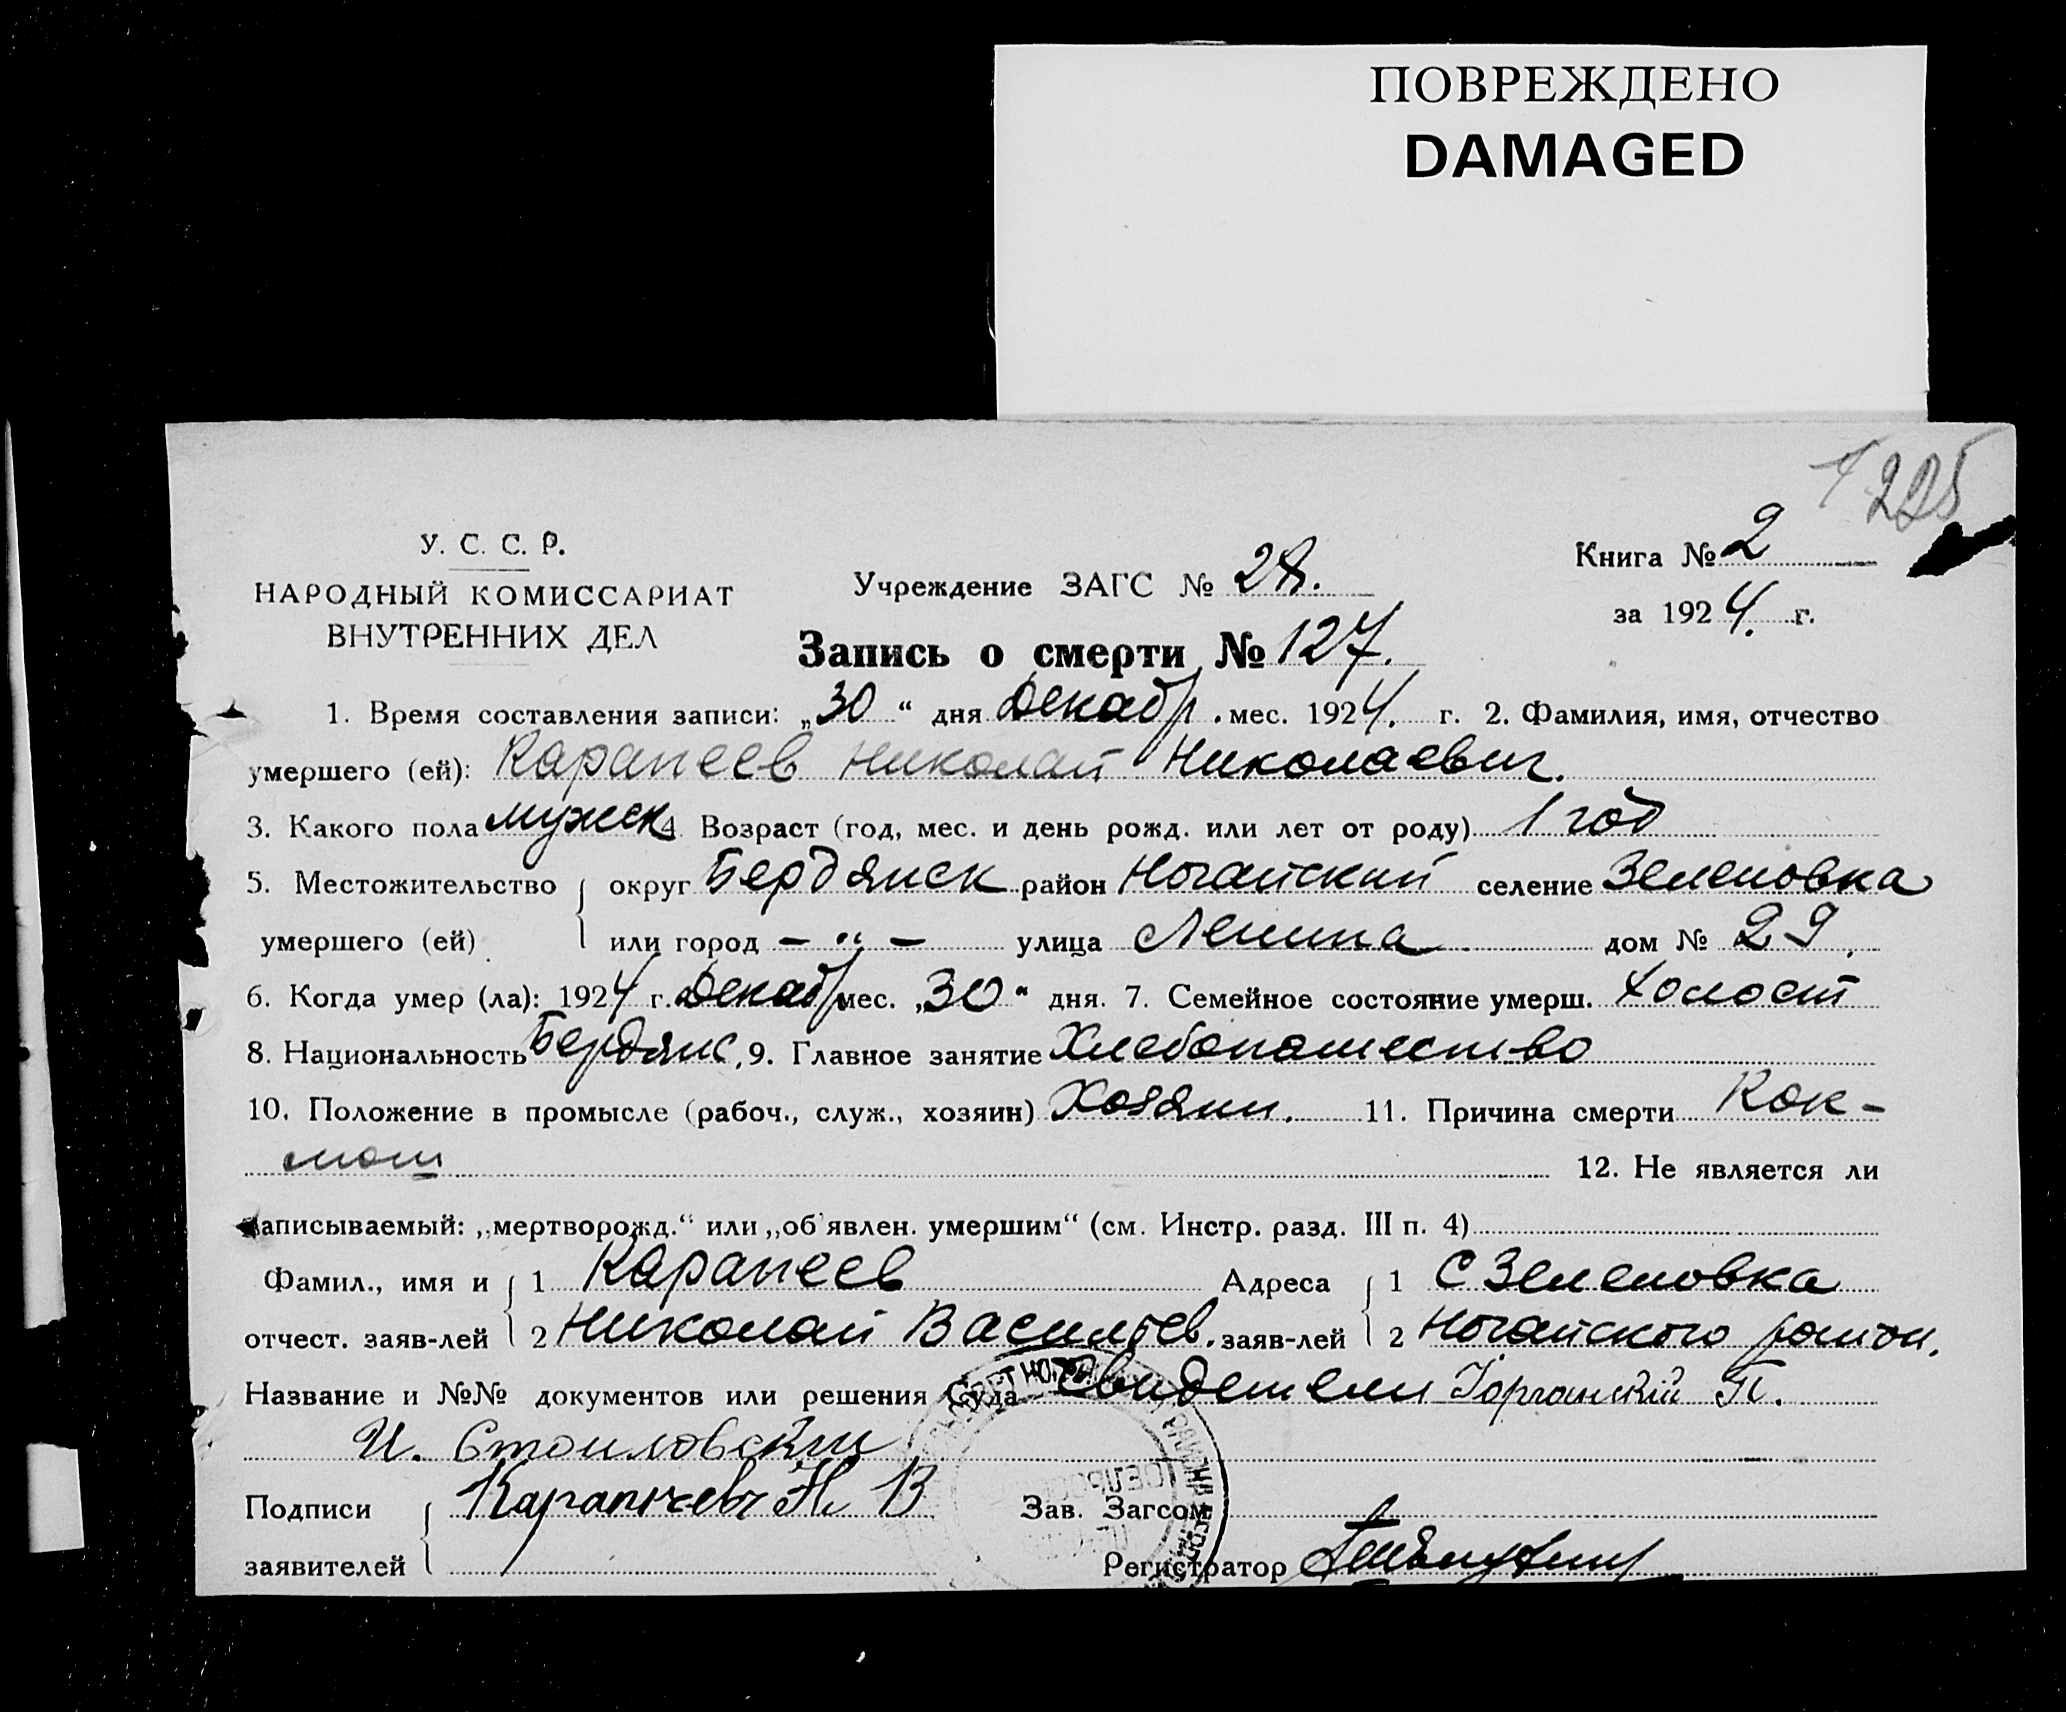 ПОВРЕЖДЕНО
DAMAGED
225
У. С. С. Р.
НАРОДНЫЙ КОМИССАРИАТ
ВНУТРЕННИХ ДЕЛ
Учреждение ЗАГС № 28.
Книга № 2
за 1924. г.
Запись о смерти № 127.
1. Время составления записи: „30“ дня Декабр. мес. 1924. г. 2. Фамилия, имя, отчество
умершего (ей): Карапеев Николай Николаевич.
3. Какого пола мужск 4. Возраст (год, мес. и день рожд. или лет от роду) 1 год
5. Местожительство округ Бердянск район Ногайский селение Зеленовка
умершего (ей) или город – „ – улица Ленина дом № 29.
6. Когда умер (ла): 1924 г. Декабр мес. „30“ дня. 7. Семейное состояние умерш. холост
8. Национальность Бердянс, 9. Главное занятие Хлебопашество
10. Положение в промысле (рабоч., служ., хозяин) Хозяин. 11. Причина смерти Кок-
люш
12. Не является ли
записываемый: „мертворожд.“ или „об'явлен. умершим“ (см. Инстр. разд. III п. 4)
Фамил., имя и 1 Карапеев Адреса 1 С Зеленовка
отчест. заяв-лей 2 Николай Васильев. заяв-лей 2 Ногайского район.
Название и №№ документов или решения Суда свидетели П.
И. Стоиловский
Подписи Н В Зав. Загсом
заявителей Регистратор